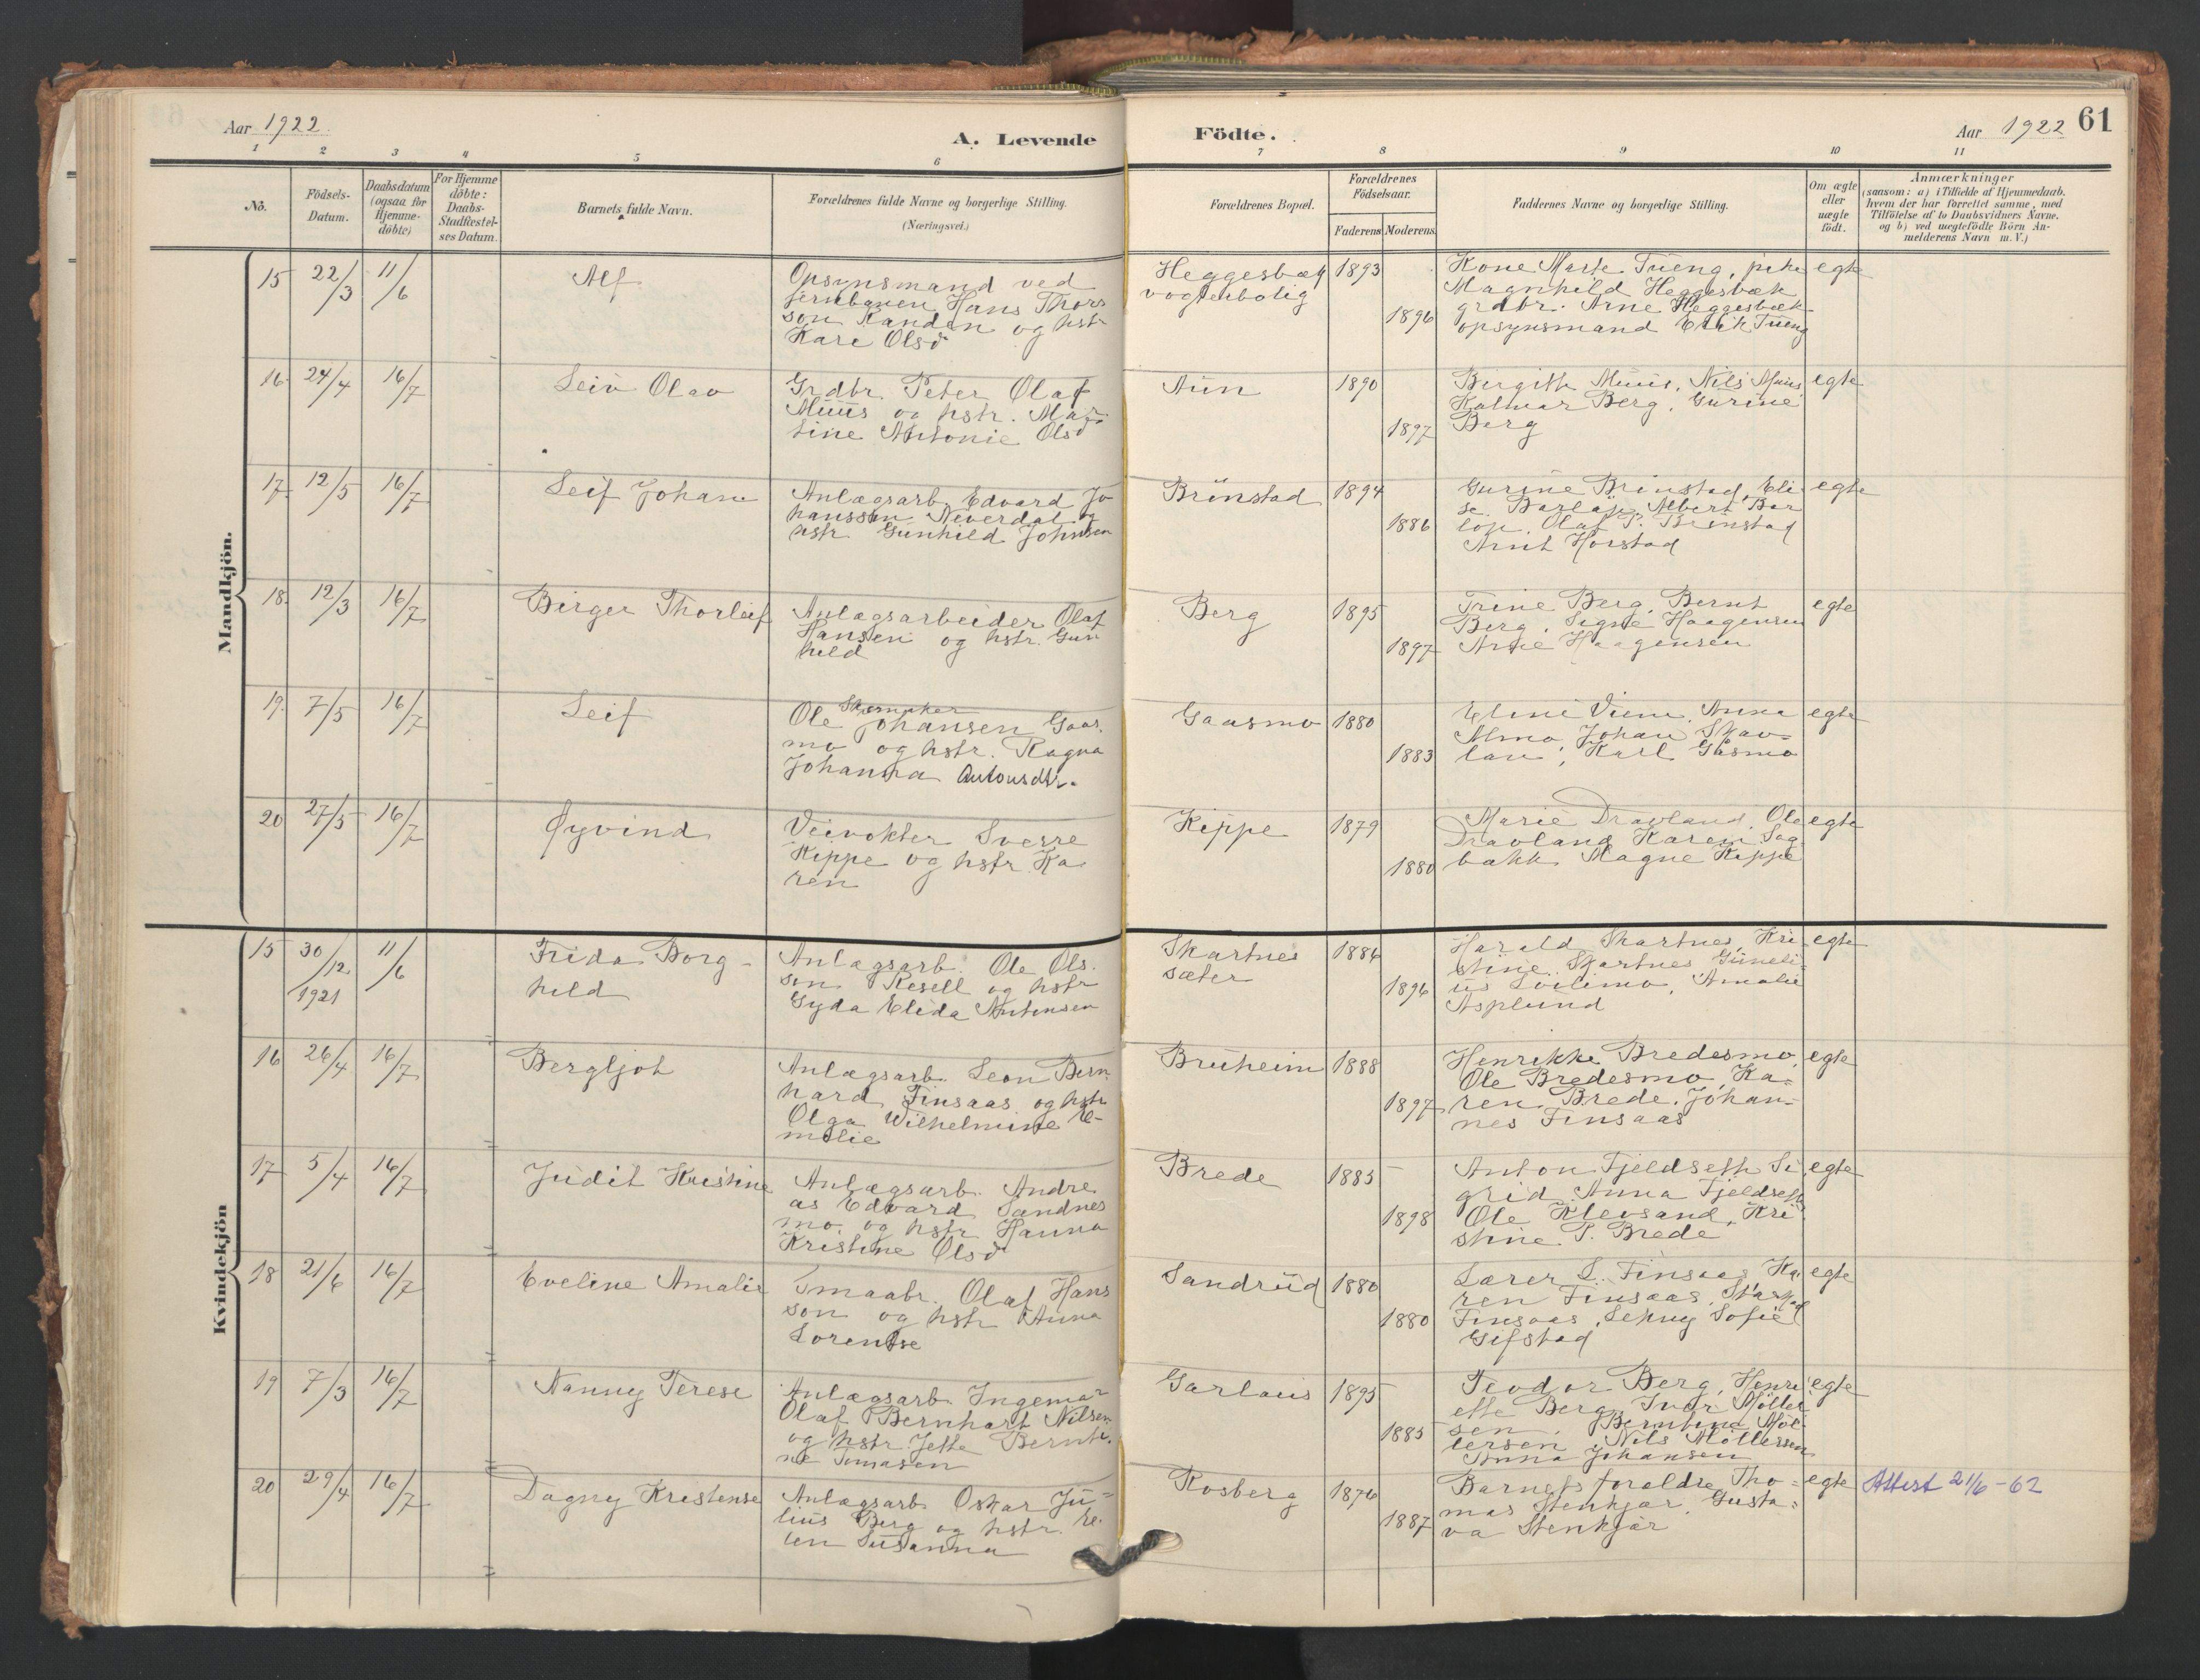 Aar 1922.
A. Levende
Födte.
Aar 1922
61
1 2 3 4 5 6 7 8 9 10 11
No.
Födsels-
Datum.
Daabsdatum
(ogsaa for
Hjemme-
döbte)
For Hjemme
döbte:
Daabs-
Stadfæstel-
ses Datum.
Barnets fulde Navn.
Forældrenes fulde Navne og borgerlige Stilling.
(Næringsvei.)
Forældrenes Bopæl.
Forældrenes
Födselsaar.
Faderens Moderens
Faddernes Navne og borgerlige Stilling.
Om ægte
eller
uægte
födt.
Anmærkninger
(saasom: a) i Tilfælde af Hjemmedaab,
hvem der har forrettet samme, med
Tilföielse af to Daabsvidners Navne.
og b) ved uægtefödte Börn An-
melderens Navn m.V.)
Mandkjön.
15
22/3
11/6
Alf
Opsynsmand ved
jernbanen Hans Thors
son Randen og hstr
Kari Olsd
Heggesbæk
vogterbolig
1893
1896
Kone Marte Tueng, pike
Magnhild Heggesbæk
grdbr. Arne Heggesbæk
opsynsmand Erik Tueng
egte
16
24/4
16/7
Leiv Olav
Grdbr. Peter Olaf
Muus og hstr. Mar
tine Antonie Olsd
Aun
1890
1897
Birgith Muus, Nils Muus
Halmar Berg, Gurine
Berg
egte
17
12/5
16/7
Leif Johan
Anlægsarb. Edvard Jo
hanssen Neverdal og
hstr Gunhild Johnsen
Brünstad
1894
1886
Gurine Brünstad, Eli
se Barlöp, Albert Bar
löp, Olaf P. Brünstad
Arnt Horstad
egte
18
12/3
16/7
Birger Thorleif
Anlægsarbeider Olaf
Hansen og hstr. Gun
hild
Berg
1895
1897
Trine Berg, Bernt
Berg, Signe Haagensen
Arne Haagensen
egte
19.
7/5
16/7
Leif
Skomaker
Ole Johansen Gaas
mo og hstr. Ragna
Johanna Antonsdtr.
Gaasmo
1880
1883
Eline Viem, Anna
Almo, Johan Skav-
lan, Karl Gåsmo
egte
20
27/5
16/7
Øyvind
Veivokter Sverre
Kippe og hstr. Ka
ren
Kippe
1879
1880
Marie Dravland, Ole
Dravland Karen Sag
bakk Magne Kippe
egte
Kvindekjön
15
30/12
1921
11/6
Frida Borg-
hild
Anlægsarb. Ole Ols.
son Kesell og hstr
Gyda Elida Antonsen
Skartnes
sæter
1886
1896
Harald Skartnes, Kri
stine Skartnes
Amalie
Asplund
egte
16
26/4
16/7
Bergljot
Anlægsarb. Leon Bern
hard Finsaas og hstr
Olga Wilhelmine E-
milie
Bruheim
1888
1897
Henrikke Bredesmo,
Ole Bredesmo, Ka-
ren Brede, Johan-
nes Finsaas
egte
17
5/4
16/7
Judit Kristine
Anlægsarb. Andre
as Edvard Sandnes
mo og hstr Hanna
Kristine Olsd
Brede
1885
1898
Anton Fjeldseth Si
grid Anna Fjeldseth
Ole Klevsand, Kri
stine P. Brede
egte
18
21/6
16/7
Eveline Amalie
Smaabr. Olaf Hans
son og hstr Anna
Lorentse
Sandrud
1880
1880
Lærer L. Finsaas, Ka
ren Finsaas,
Finsaas, Sofie
Gifstad
egte
19
7/3
16/7
Nanny Terese
Anlægsarb. Ingemar
Olaf Bernhart Nilsen
og hstr. Jette Bernti
ne Tomasen
Garlaus
1895
1885
Teodor Berg, Henri
ette Berg, Ivar Möller
sen, Berntine Möl
lersen Nils Möllersen
Anna Johansen
egte
20
29/4
16/7
Dagny Kristense
Anlægsarb Oskar Ju-
lius Berg og hstr. El-
len Susanna
Rosberg
1876
1887
Barnets foreldre, Tho-
mas Stenkjær, Gusta-
va Stenkjær
egte
Attest 21/6-62